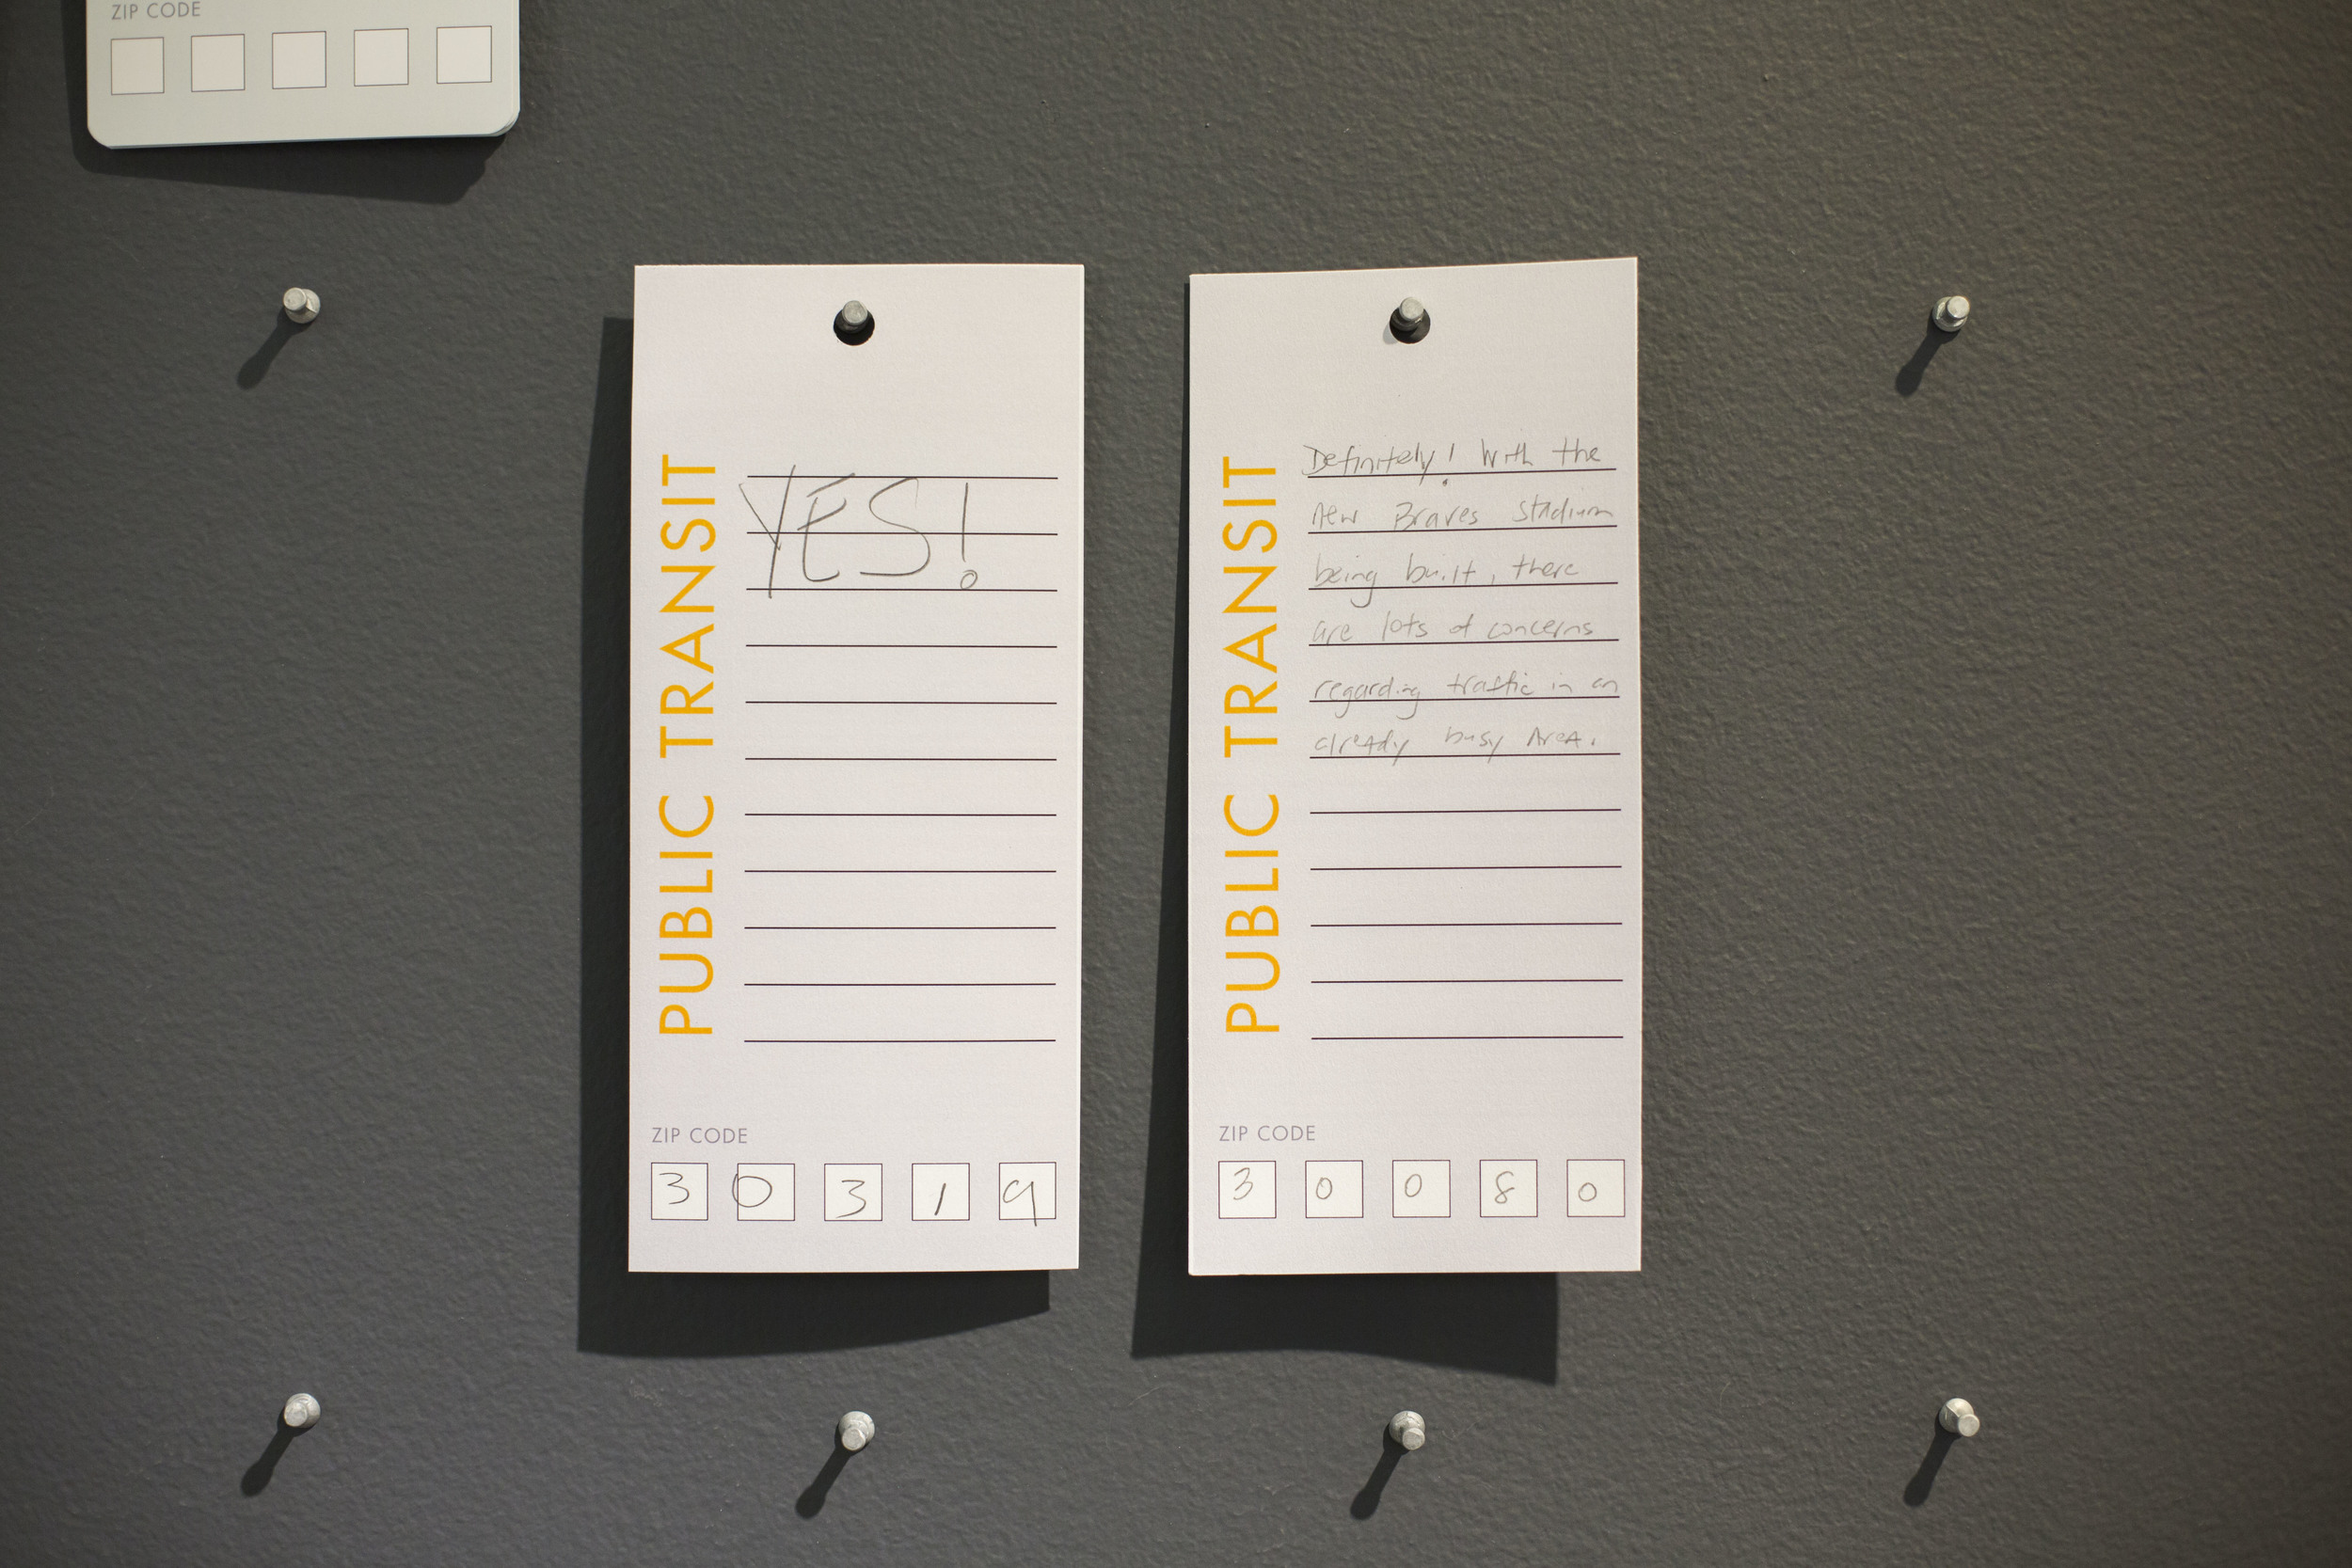 ZIP CODE
PUBLIC TRANSIT
YES!
ZIP CODE
3 0 3 1 9
PUBLIC TRANSIT
Definitely! With the
new Braves Stadium
being built, there
are lots of concerns
regarding traffic in an
already busy Area.
ZIP CODE
3 0 0 8 0